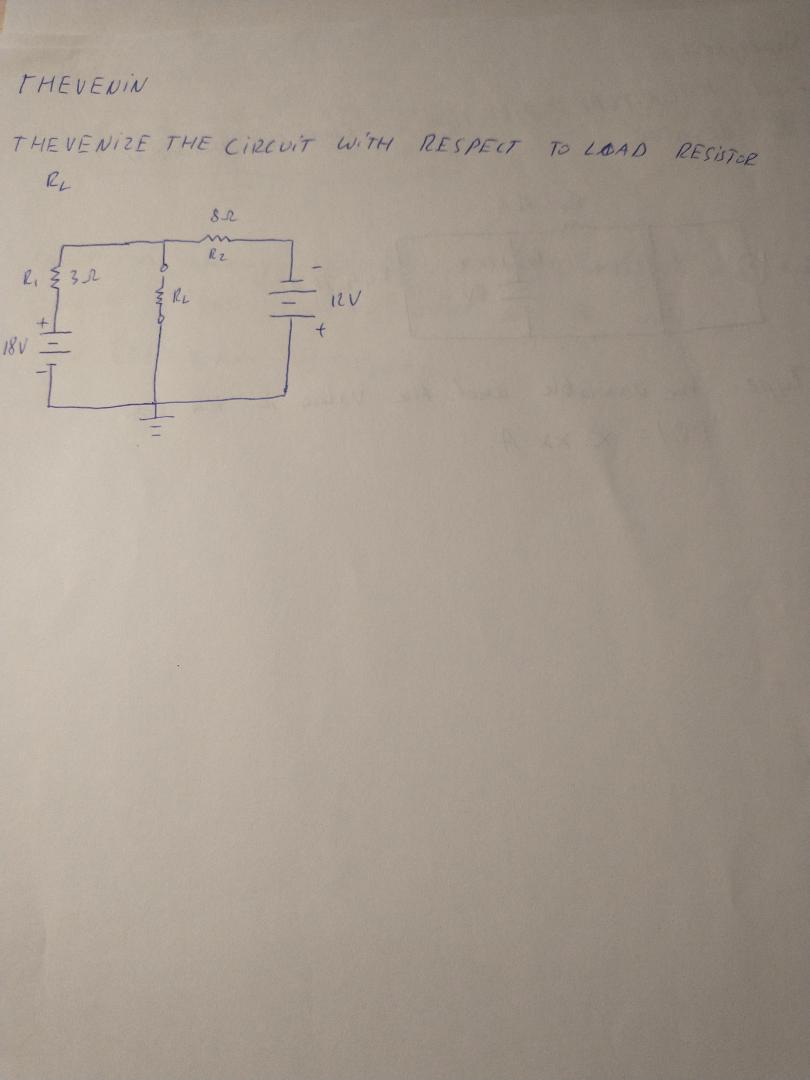 THEVENIN
THEVENIZE THE CIRCUIT WITH RESPECT TO LOAD RESISTOR
RL
8Ω
R2
R1 3Ω
RL
-
12V
+
+
18V
-